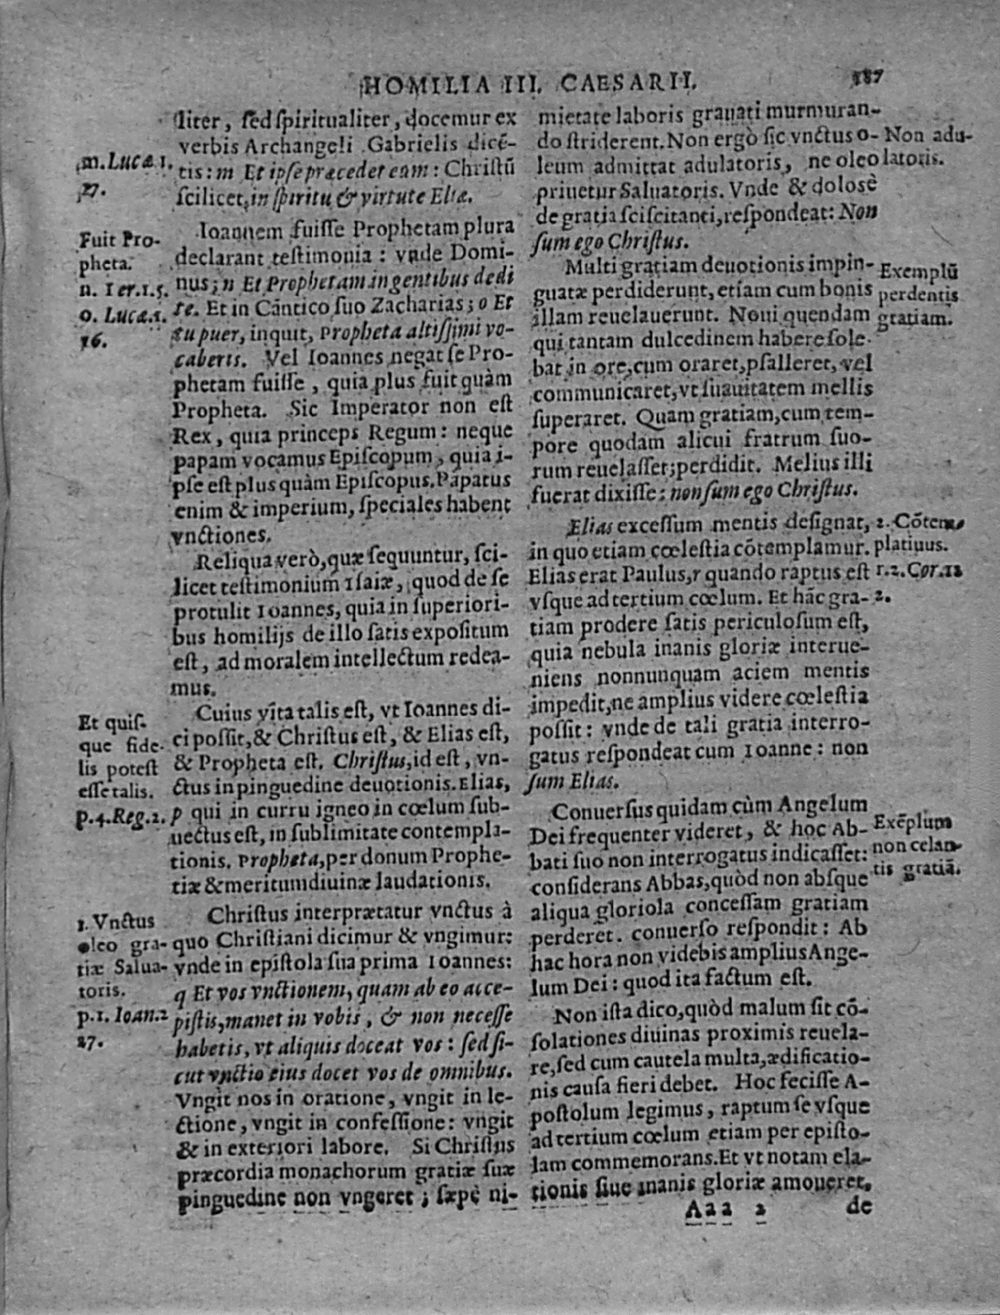 HOMILIA III. CAESARII.
187
liter, sed spiritualiter, docemur ex
verbis Archangeli Gabrielis dicē-
tis: m Et ipse præcedet eam: Christū
scilicet, in spiritu & virtute Eliæ.
m. Lucæ 1.
27.
Ioannem fuisse Prophetam plura
declarant testimonia: vnde Domi-
nus; n Et Prophetam in gentibus dedi
te. Et in Cãntico suo Zacharias; o Et
tu puer, inquit, Propheta altissimi vo-
caberis. Vel Ioannes negat se Pro-
phetam fuisse, quia plus fuit quàm
Propheta. Sic Imperator non est
Rex, quia princeps Regum: neque
papam vocamus Episcopum, quia i-
pse est plus quàm Episcopus. Papatus
enim & imperium, speciales habent
vnctiones.
Fuit Pro-
pheta.
n. Ier.1.5.
o. Lucæ.1.
76.
Reliqua verò, quæ sequuntur, sci-
licet testimonium Isaiæ, quod de se
protulit Ioannes, quia in superiori-
bus homilijs de illo satis expositum
est, ad moralem intellectum redea-
mus.
Cuius vita talis est, vt Ioannes di-
ci possit, & Christus est, & Elias est,
& Propheta est. Christus, id est, vn-
ctus in pinguedine deuotionis. Elias,
p qui in curru igneo in cœlum sub-
uectus est, in sublimitate contempla-
tionis. Propheta, per donum Prophe-
tiæ & meritum diuinæ laudationis.
Et quis-
que fide-
lis potest
esse talis.
p.4. Reg.2.
Christus interprætatur vnctus à
quo Christiani dicimur & vngimur:
vnde in epistola sua prima Ioannes:
q Et vos vnctionem, quam ab eo acce-
pistis, manet in vobis, & non necesse
habetis, vt aliquis doceat vos: sed si-
cut vnctio eius docet vos de omnibus.
Vngit nos in oratione, vngit in le-
ctione, vngit in confessione: vngit
& in exteriori labore. Si Christus
præcordia monachorum gratiæ suæ
pinguedine non vngeret; sæpe ni-
1. Vnctus
oleo gra-
tiæ Salua-
toris.
p.1. Ioan.2
27.
mietate laboris grauati murmuran-
do striderent. Non ergò sic vnctus o-
leum admittat adulatoris, ne oleo
priuetur Saluatoris. Vnde & dolosè
de gratia sciscitanti, respondeat: Non
sum ego Christus.
Non adu-
latoris.
Multi gratiam deuotionis impin-
guatæ perdiderunt, etiam cum bonis
illam reuelauerunt. Noui quendam
qui tantam dulcedinem habere sole-
bat in ore, cum oraret, psalleret, vel
communicaret, vt suauitatem mellis
superaret. Quam gratiam, cum tem-
pore quodam alicui fratrum suo-
rum reuelasset; perdidit. Melius illi
fuerat dixisse: non sum ego Christus.
Exemplū
perdentis
gratiam.
Elias excessum mentis designat,
in quo etiam cœlestia cōtemplamur.
Elias erat Paulus, r quando raptus est
vsque ad tertium cœlum. Et hãc gra-
tiam prodere satis periculosum est,
quia nebula inanis gloriæ interue-
niens nonnunquam aciem mentis
impedit, ne amplius videre cœlestia
possit: vnde de tali gratia interro-
gatus respondeat cum Ioanne: non
sum Elias.
2. Cōtem-
platiuus.
r.2. Cor.12
2.
Conuersus quidam cùm Angelum
Dei frequenter videret, & hoc Ab-
bati suo non interrogatus indicasset:
considerans Abbas, quòd non absque
aliqua gloriola concessam gratiam
perderet. conuerso respondit: Ab
hac hora non videbis amplius Ange-
lum Dei: quod ita factum est.
Exēplum
non celan-
tis gratiã.
Non ista dico, quòd malum sit cō-
solationes diuinas proximis reuela-
re, sed cum cautela multa, ædificatio-
nis causa fieri debet. Hoc fecisse A-
postolum legimus, raptum se vsque
ad tertium cœlum etiam per episto-
lam commemorans. Et vt notam ela-
tionis siue inanis gloriæ amoueret,
Aaa 2
de